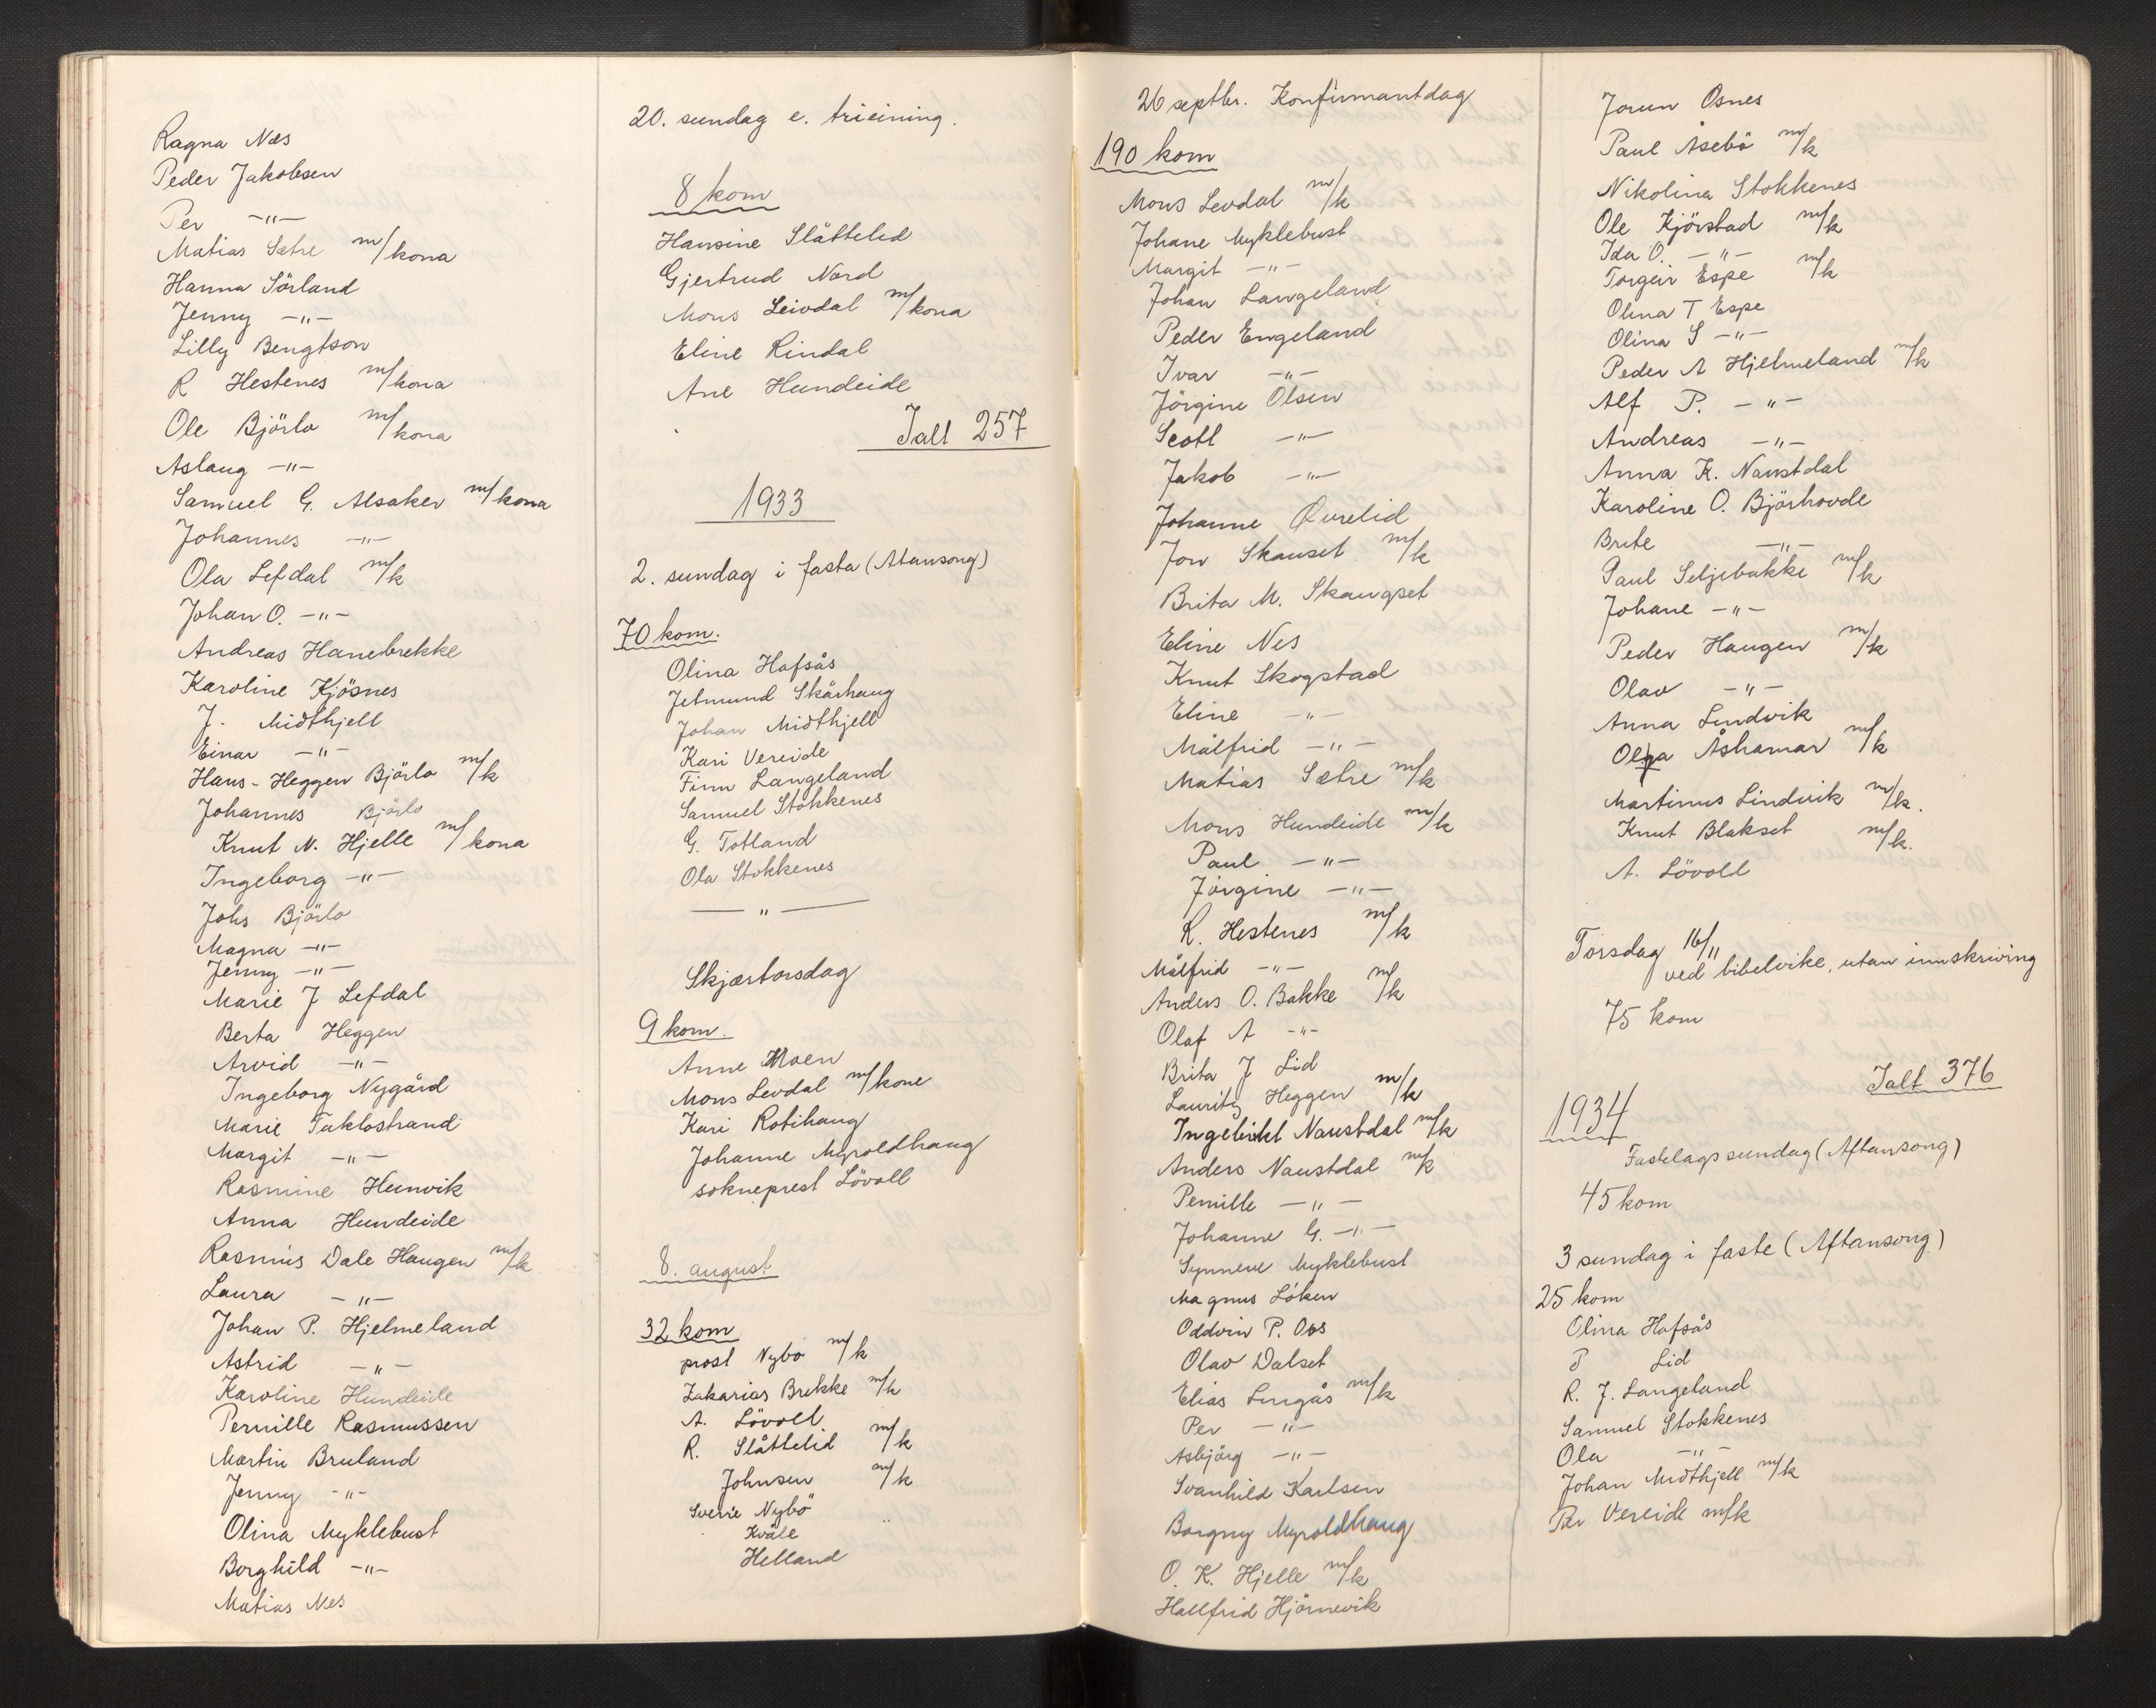 Ragna Nes
Peder Jakobsen
Per —"—
Matias Sætre m/kona
Hanna Sörland
Jenny —"—
Lilly Bengtson
R Hestenes m/kona
Ole Björlo m/kona
Aslaug —"—
Samuel G. Alsaker m/kona
Johannes —"—
Ola Lefdal m/k
Johan O. —"—
Andreas Hanebrekke
Karoline Kjösnes
J. Midthjell
Einar —"—
Hans-Heggen Björlo m/k
Johannes Björlo
Knut N. Hjelle m/kona
Ingeborg —"—
Johs Björlo
Magna —"—
Jenny —"—
Marie J Lefdal
Berta Heggen
Arvid —"—
Ingeborg Nygård
Marie Taklostrand
Margit —"—
Rasmine Hunvik
Anna Hundeide
Rasmus Dale Haugen m/k
Laura —"—
Johan P. Hjelmeland
Astrid —"—
Karoline Hundeide
Pernille Rasmussen
Martin Bruland
Jenny —"—
Olina Myklebust
Borghild —"—
Matias Nes
20. sundag e. trieining.
8 kom
Hansine Slåttelid
Gjertrud Nord
Mons Leivdal m/kona
Eline Rindal
Ane Hundeide
Ialt 257
1933
2. sundag i fasta (Atansong)
70 kom.
Olina Hafsås
Jetmund Skårhaug
Johan Midthjell
Kari Vereide
Finn Langeland
Samuel Stokkenes
G. Totland
Ola Stokkenes
— " —
Skjærtorsdag
9 kom.
Anne Moen
Mons Levdal m/kone
Kari Rotihaug
Johanne Myroldhaug
sokneprest Lövoll
8. august
32 kom
prost Nybö m/k
Zakarias Brekke m/k
A. Lövoll
R. Slåttelid m/k
Johnsen m/k
Sverre Nybö
Kvåle
Helland
26 septbr. Konfirmantdag
190 kom
Mons Levdal m/k
Johane Myklebust
Margit —"—
Johan Langeland
Peder Engeland
Ivar —"—
Jörgine Olsen
Scott —"—
Jakob —"—
Johanne Øvrelid
Jon Skauset m/k
Brita M. Skaugset
Eline Nes
Knut Skogstad
Eline —"—
Målfrid —"—
Matias Sætre m/k
Mons Hundeide m/k
Paul —"—
Jörgine —"—
R. Hestenes m/k
Målfrid —"—
Anders O. Bakke m/k
Olaf A —"—
Brita J Lid
Lauritz Heggen m/k
Ingebrikt Naustdal m/k
Anders Naustdal m/k
Pernille —"—
Johanne G. —"—
Synneve Myklebust
Magnus Löken
Oddvin P. Aas
Olav Dalset
Elias Lingås m/k
Per —"—
Asbjörg —"—
Svanhild Karlsen
Borgny Myroldhaug
O. K. Hjelle m/k
Hallfrid Hjörnevik
Jorun Osnes
Paul Åsebö m/k
Nikolina Stokkenes
Ole Kjörstad m/k
Ida O. —"—
Torgeir Espe m/k
Olina T Espe
Olina S —"—
Peder A Hjelmeland m/k
Alf P. —"—
Andreas —"—
Anna K. Naustdal
Karoline O. Björhovde
Brite —"—
Paul Seljebakke m/k
Johane —"—
Peder Haugen m/k
Olav —"—
Anna Lindvik
Olga Åshamar m/k
Martinus Lindvik m/k.
Knut Blakset m/k.
A. Lövoll
Torsdag 16/11
ved bibelvike, utan innskriving
75 kom
Ialt 376
1934
Fastelagssundag (Aftansong)
45 kom
3 sundag i faste (Aftansong)
25 kom
Olina Hafsås
P Lid
R. J. Langeland
Samuel Stokkenes
Ola —"—
Johan Midthjell m/k
Per Vereide m/k